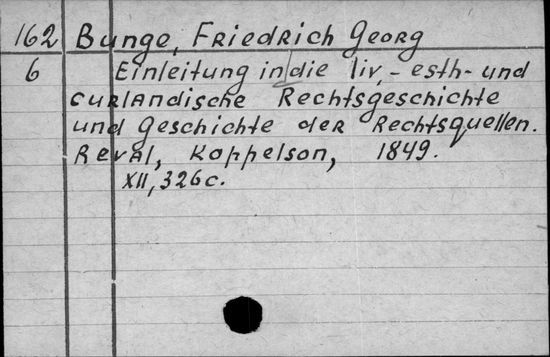 162 Bunge, Friedrich Georg
6 Einleitung in die liv, - esth- und
curlandische Rechtsgeschichte
und Geschichte der Rechtsquellen.
Reval, Koppelson, 1849.
XII, 326 c.